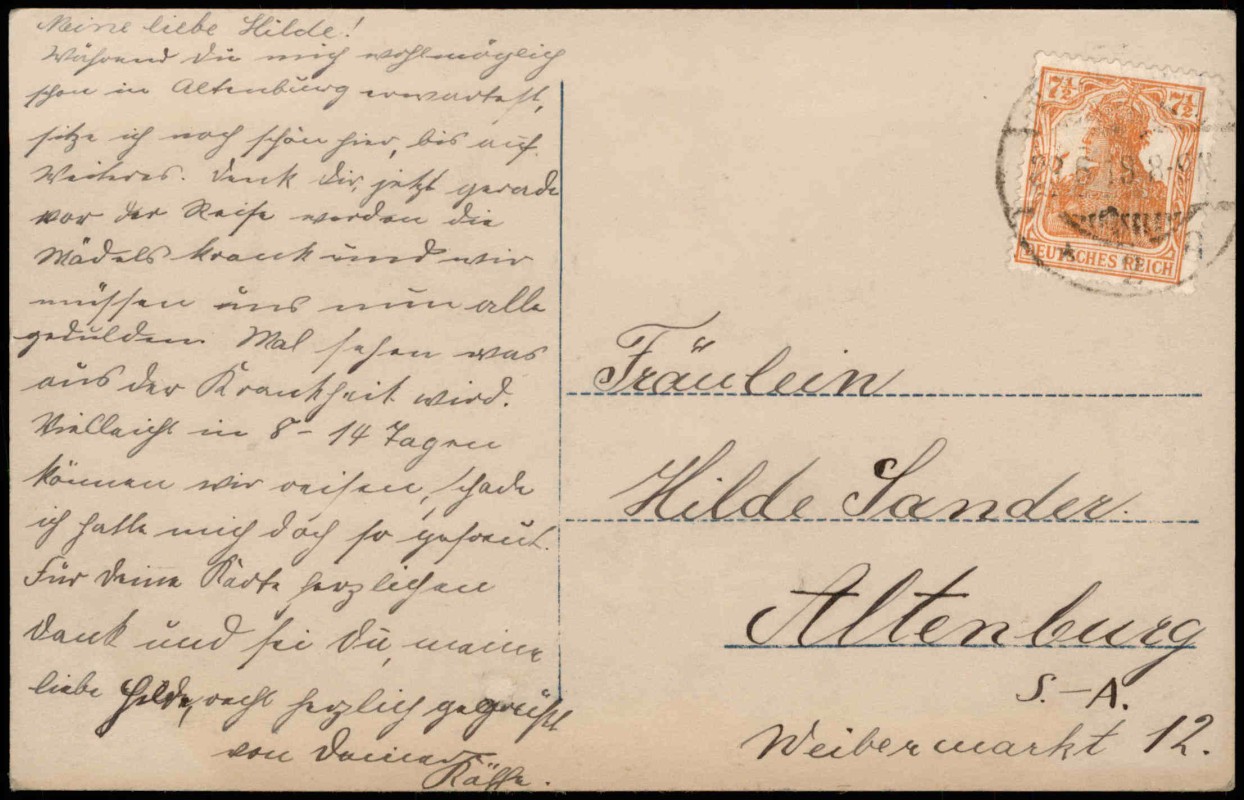 Meine liebe Hilde!
Während Du mich wohlmöglich
schon in Altenburg erwartest,
sitze ich noch schön hier, bis auf
Weiteres. Denk Dir, jetzt gerade
vor der Reise werden die
Mädels krank und wir
müssen uns nun alle
gedulden. Mal sehen was
aus der Krankheit wird.
Vielleicht in 8 - 14 Tagen
können wir reisen, schade
ich hatte mich doch so gefreut.
Für Deine Karte herzlichen
Dank und sei Du, meine
liebe Hilde, recht herzlich gegrüßt
von Deiner
Käthe.
7½ 7½
22.6.19.8-9N
DEUTSCHES REICH
Fräulein
Hilde Sander.
Altenburg
S.-A.
Weibermarkt 12.